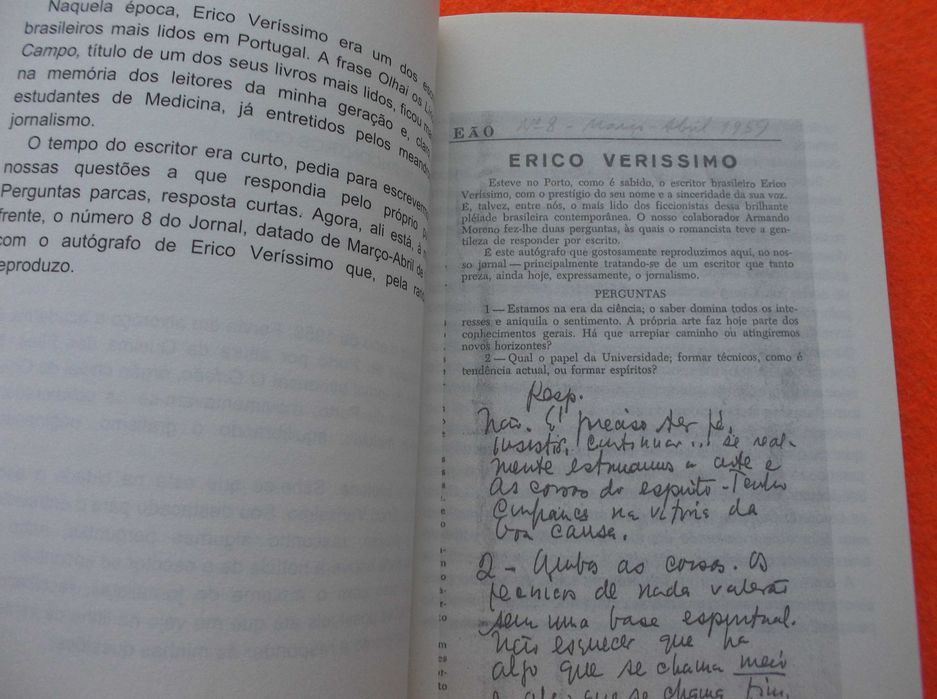 Naquela época, Erico Veríssimo era um dos
brasileiros mais lidos em Portugal. A frase Olhai os
Campo, título de um dos seus livros mais lidos, ficou
na memória dos leitores da minha geração e,
estudantes de Medicina, já entretidos pelos
jornalismo.
O tempo do escritor era curto, pedia para
nossas questões a que respondia pelo próprio
Perguntas parcas, resposta curtas. Agora, ali está, à
frente, o número 8 do Jornal, datado de Março-Abril de
com o autógrafo de Erico Veríssimo que, pela
eproduzo.
EÃO Nº 8 - Março-Abril 1959
ERICO VERISSIMO
Esteve no Porto, como é sabido, o escritor brasileiro Erico
Veríssimo, com o prestígio do seu nome e a sinceridade da sua voz.
É, talvez, entre nós, o mais lido dos ficcionistas dessa brilhante
plêiade brasileira contemporânea. O nosso colaborador Armando
Moreno fez-lhe duas perguntas, às quais o romancista teve a gen-
tileza de responder por escrito.
É este autógrafo que gostosamente reproduzimos aqui, no nos-
so jornal — principalmente tratando-se de um escritor que tanto
preza, ainda hoje, expressamente, o jornalismo.
PERGUNTAS
1 — Estamos na era da ciência; o saber domina todos os inte-
resses e aniquila o sentimento. A própria arte faz hoje parte dos
conhecimentos gerais. Há que arrepiar caminho ou atingiremos
novos horizontes?
2 — Qual o papel da Universidade; formar técnicos, como é
tendência actual, ou formar espíritos?
Resp.
Não. É preciso ter fé,
insistir, continuar... se real-
mente estimamos a arte e
as coisas do espírito - Tenho
confiança na vitória da
boa causa.
2 - Ambas as coisas. Os
técnicos de nada valerão
sem uma base espiritual.
Não esquecer que há
algo que se chama meio
e algo que se chama fim.